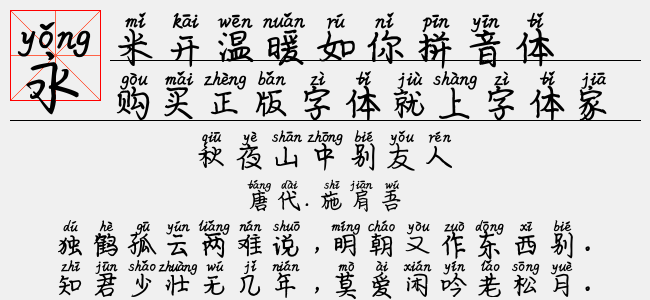 yǒng
永
mǐ kāi wēn nuǎn rú nǐ pīn yīn tǐ
米开温暖如你拼音体
gòu mǎi zhèng bǎn zì tǐ jiù shàng zì tǐ jiā
购买正版字体就上字体家
qiū yè shān zhōng bié yǒu rén
秋夜山中别友人
táng dài shī jiān wú
唐代.施肩吾
dú hè gū yún liǎng nán shuō míng cháo yòu zuò dōng xī bié
独鹤孤云两难说,明朝又作东西别.
zhī jūn shǎo zhuàng wú jǐ nián mò ài xián yín lǎo sōng yuè
知君少壮无几年,莫爱闲吟老松月.